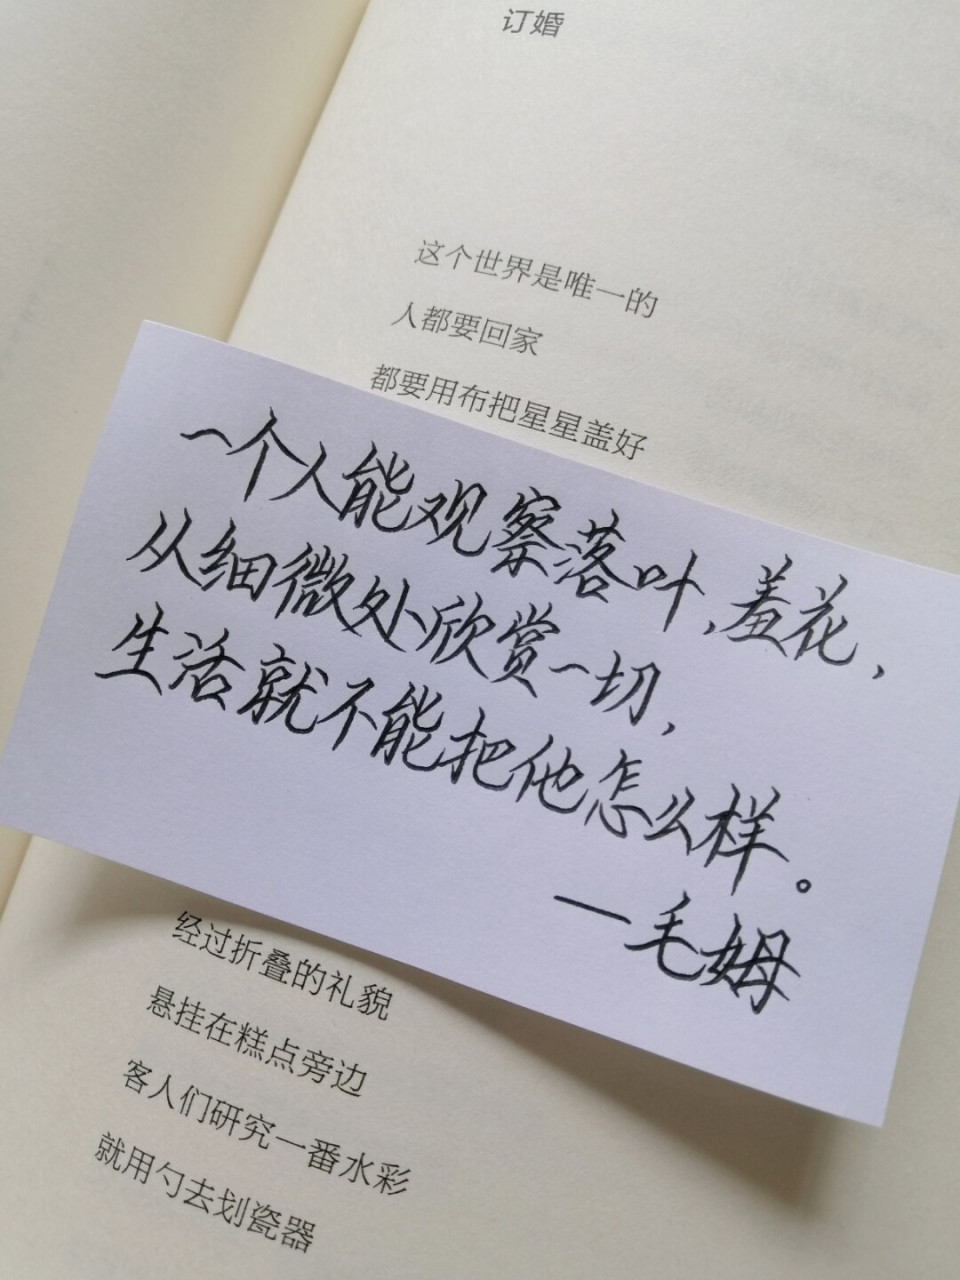 订婚
这个世界是唯一的
人都要回家
都要用布把星星盖好
一个人能观察落叶,羞花,
从细微处欣赏一切,
生活就不能把他怎么样。
—毛姆
经过折叠的礼貌
悬挂在糕点旁边
客人们研究一番水彩
就用勺去划瓷器